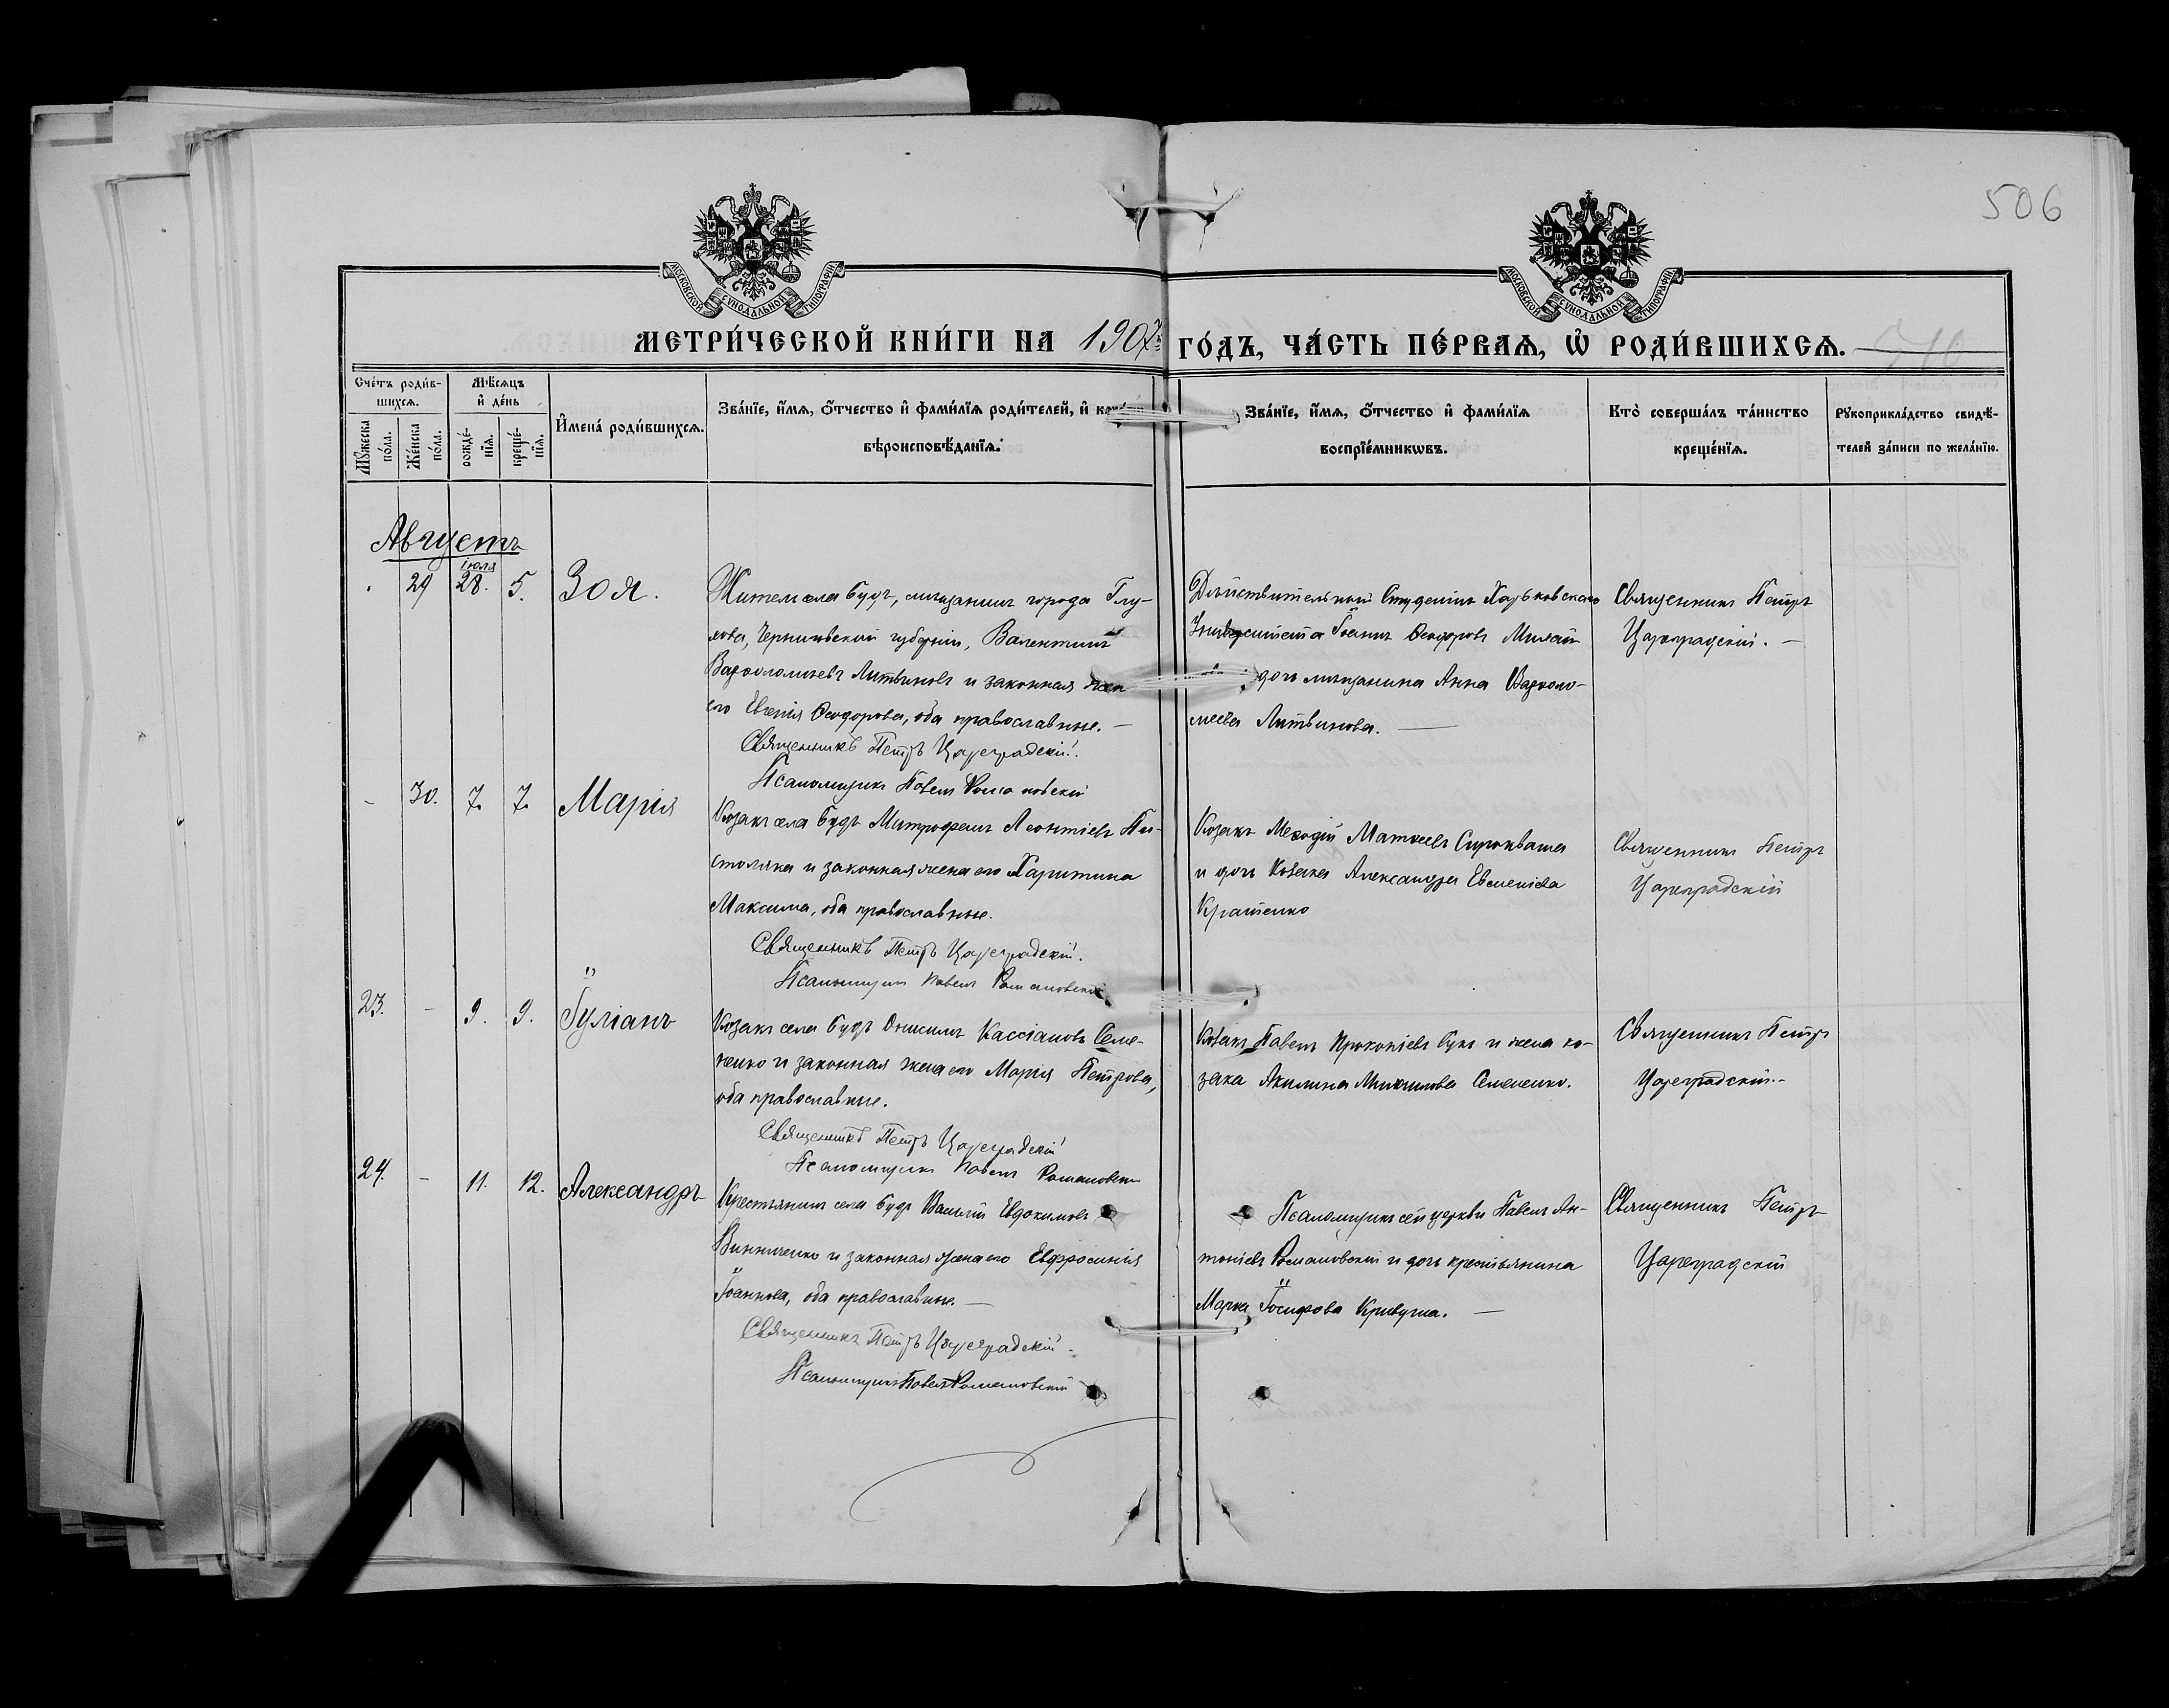 506
МОСКОВСКОЙ СѴНОДАЛЬНОЙ ТИПОГРАФІИ
МОСКОВСКОЙ СѴНОДАЛЬНОЙ ТИПОГРАФІИ
МЕТРИ́ЧЕСКОЙ КНИ́ГИ НА 1907 ГО́ДЪ, ЧА́СТЬ ПЕ́РВАѦ, Ѡ РОДИ́ВШИХСѦ.
Сче́тъ роди́в-
шихсѧ.
Мꙋ́жеска по́ла.
Же́нска по́ла.
Мѣ́сѧцъ
и де́нь
рожде́-
нїѧ.
креще́-
нїѧ.
Имена́ роди́вшихсѧ.
Зва́нїе, и́мѧ, ѻ́тчество и фами́лїѧ роди́телей, и
вѣроисповѣ́данїѧ.
Зва́нїе, и́мѧ, ѻ́тчество и фами́лїѧ
воспрїе́мникѡвъ.
Кто̀ соверша́лъ та́инство
креще́нїѧ.
Рꙋкоприкла́дство свидѣ́-
телей за́писи по жела́нїю.
Августъ
іюля
29 28. 5. Зоя.
Житель села Будъ, мѣщанинъ города Глу-
хова, Черниговской губерніи, Валентинъ
Варѳоломеевъ Литвиновъ и законная жена
его Евгенія Ѳеодорова, оба православные. —
Священникъ Петръ Цареградскій.
Псаломщикъ Павелъ Романовскій
Дѣйствительный Студентъ Харьковскаго
Университета Іоаннъ Ѳеодоровъ
дочь мѣщанина Анна Варѳоло-
меева Литвинова. —
Священникъ Петръ
Цареградскій. —
- 30. 7. 7. Марія
Козакъ села Будъ Митрофанъ Леонтіевъ Пи-
столяка и законная жена его Харитина
Максима, оба православные.
Священникъ Петръ Цареградскій.
Псаломщикъ Павелъ Романовскій
Козакъ Меѳодій Матѳеевъ Сыроваша
и дочь козака Александра Евсеніева
Кратенко
Священникъ Петръ
Цареградскій
23. - 9. 9. Іуліанъ
Козакъ села Будъ Онисимъ Кассіановъ Семе-
ненко и законная жена его Марія Петрова,
оба православные.
Священникъ Петръ Цареградскій
Псаломщикъ Павелъ Романовскій
Козакъ Павелъ Прокопіевъ Букъ и жена ко-
зака Акилина Михаилова Семененко.
Священникъ Петръ
Цареградскій. -
24. - 11. 12. Александръ
Крестьянинъ села Будъ Василій Евдокимовъ
Винниченко и законная жена его Евфросинія
Іоаннова, оба православные. —
Священникъ Петръ Цареградскій.
Псаломщикъ Павелъ Романовскій
Псаломщикъ сей церкви Павелъ Ан-
тоніевъ Романовскій и дочь крестьянина
Марѳа Іосифова Кривуша. —
Священникъ Петръ
Цареградскій